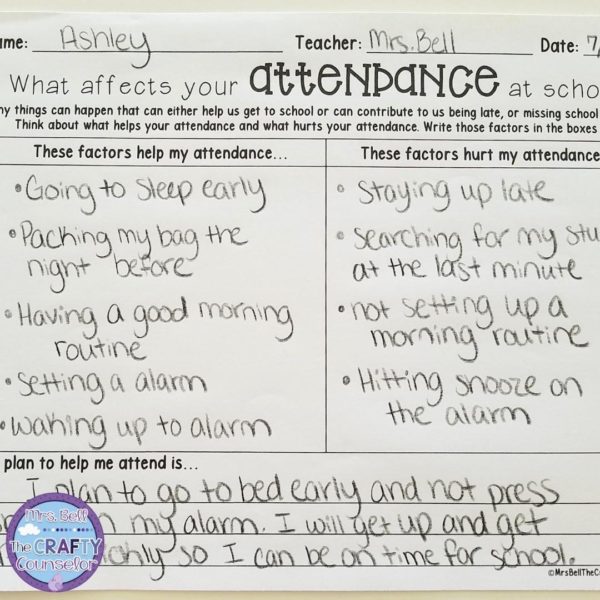 ame: Ashley Teacher: Mrs. Bell Date: 7/
What affects your attendance at scho
ny things can happen that can either help us get to school or can contribute to us being late, or missing school
Think about what helps your attendance and what hurts your attendance. Write those factors in the boxes
These factors help my attendance...
• Going to sleep early
• Packing my bag the
night before
• Having a good morning
routine
• Setting a alarm
• waking up to alarm
These factors hurt my attendance
• Staying up late
• searching for my stu
at the last minute
• not setting up a
morning routine
• Hitting snooze on
the alarm
plan to help me attend is...
I plan to go to bed early and not press
on my alarm. I will get up and get
so I can be on time for school.
Mrs. Bell
The CRAFTY
Counselor
©MrsBellTheCr